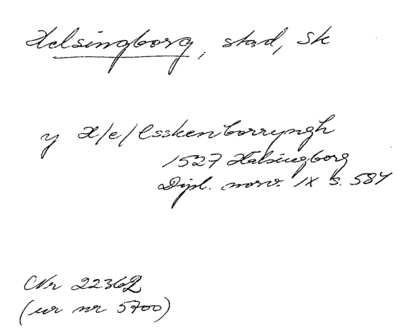 Helsingborg, stad, Sk
y H/e/lsskenborryngh
1527 Halsingborg
Dipl. norv. IX s. 584
CNr 22362
(ur nr 5700)